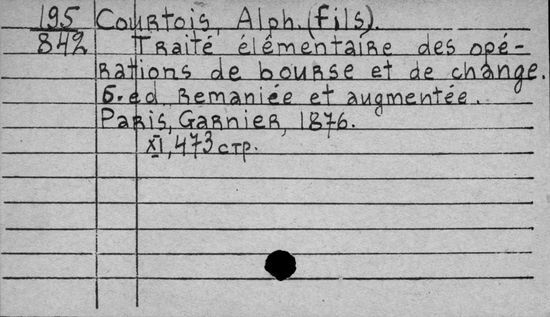 195 Courtois, Alph. (fils).
842 Traité élémentaire des opé-
rations de bourse et de change.
6. ed. remaniée et augmentée.
Paris, Garnier, 1876.
XI, 473 стр.